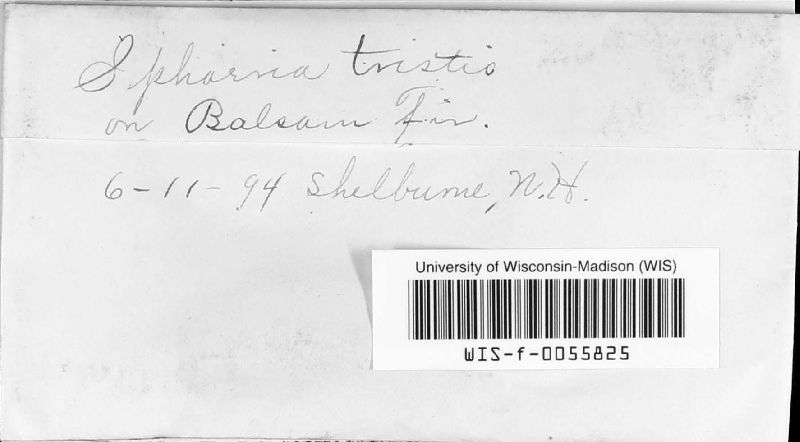 Sphaeria tristis
on Balsam Fir.
6-11-94 Shelburne, N.H.
University of Wisconsin-Madison (WIS)
WIS-f-0055825